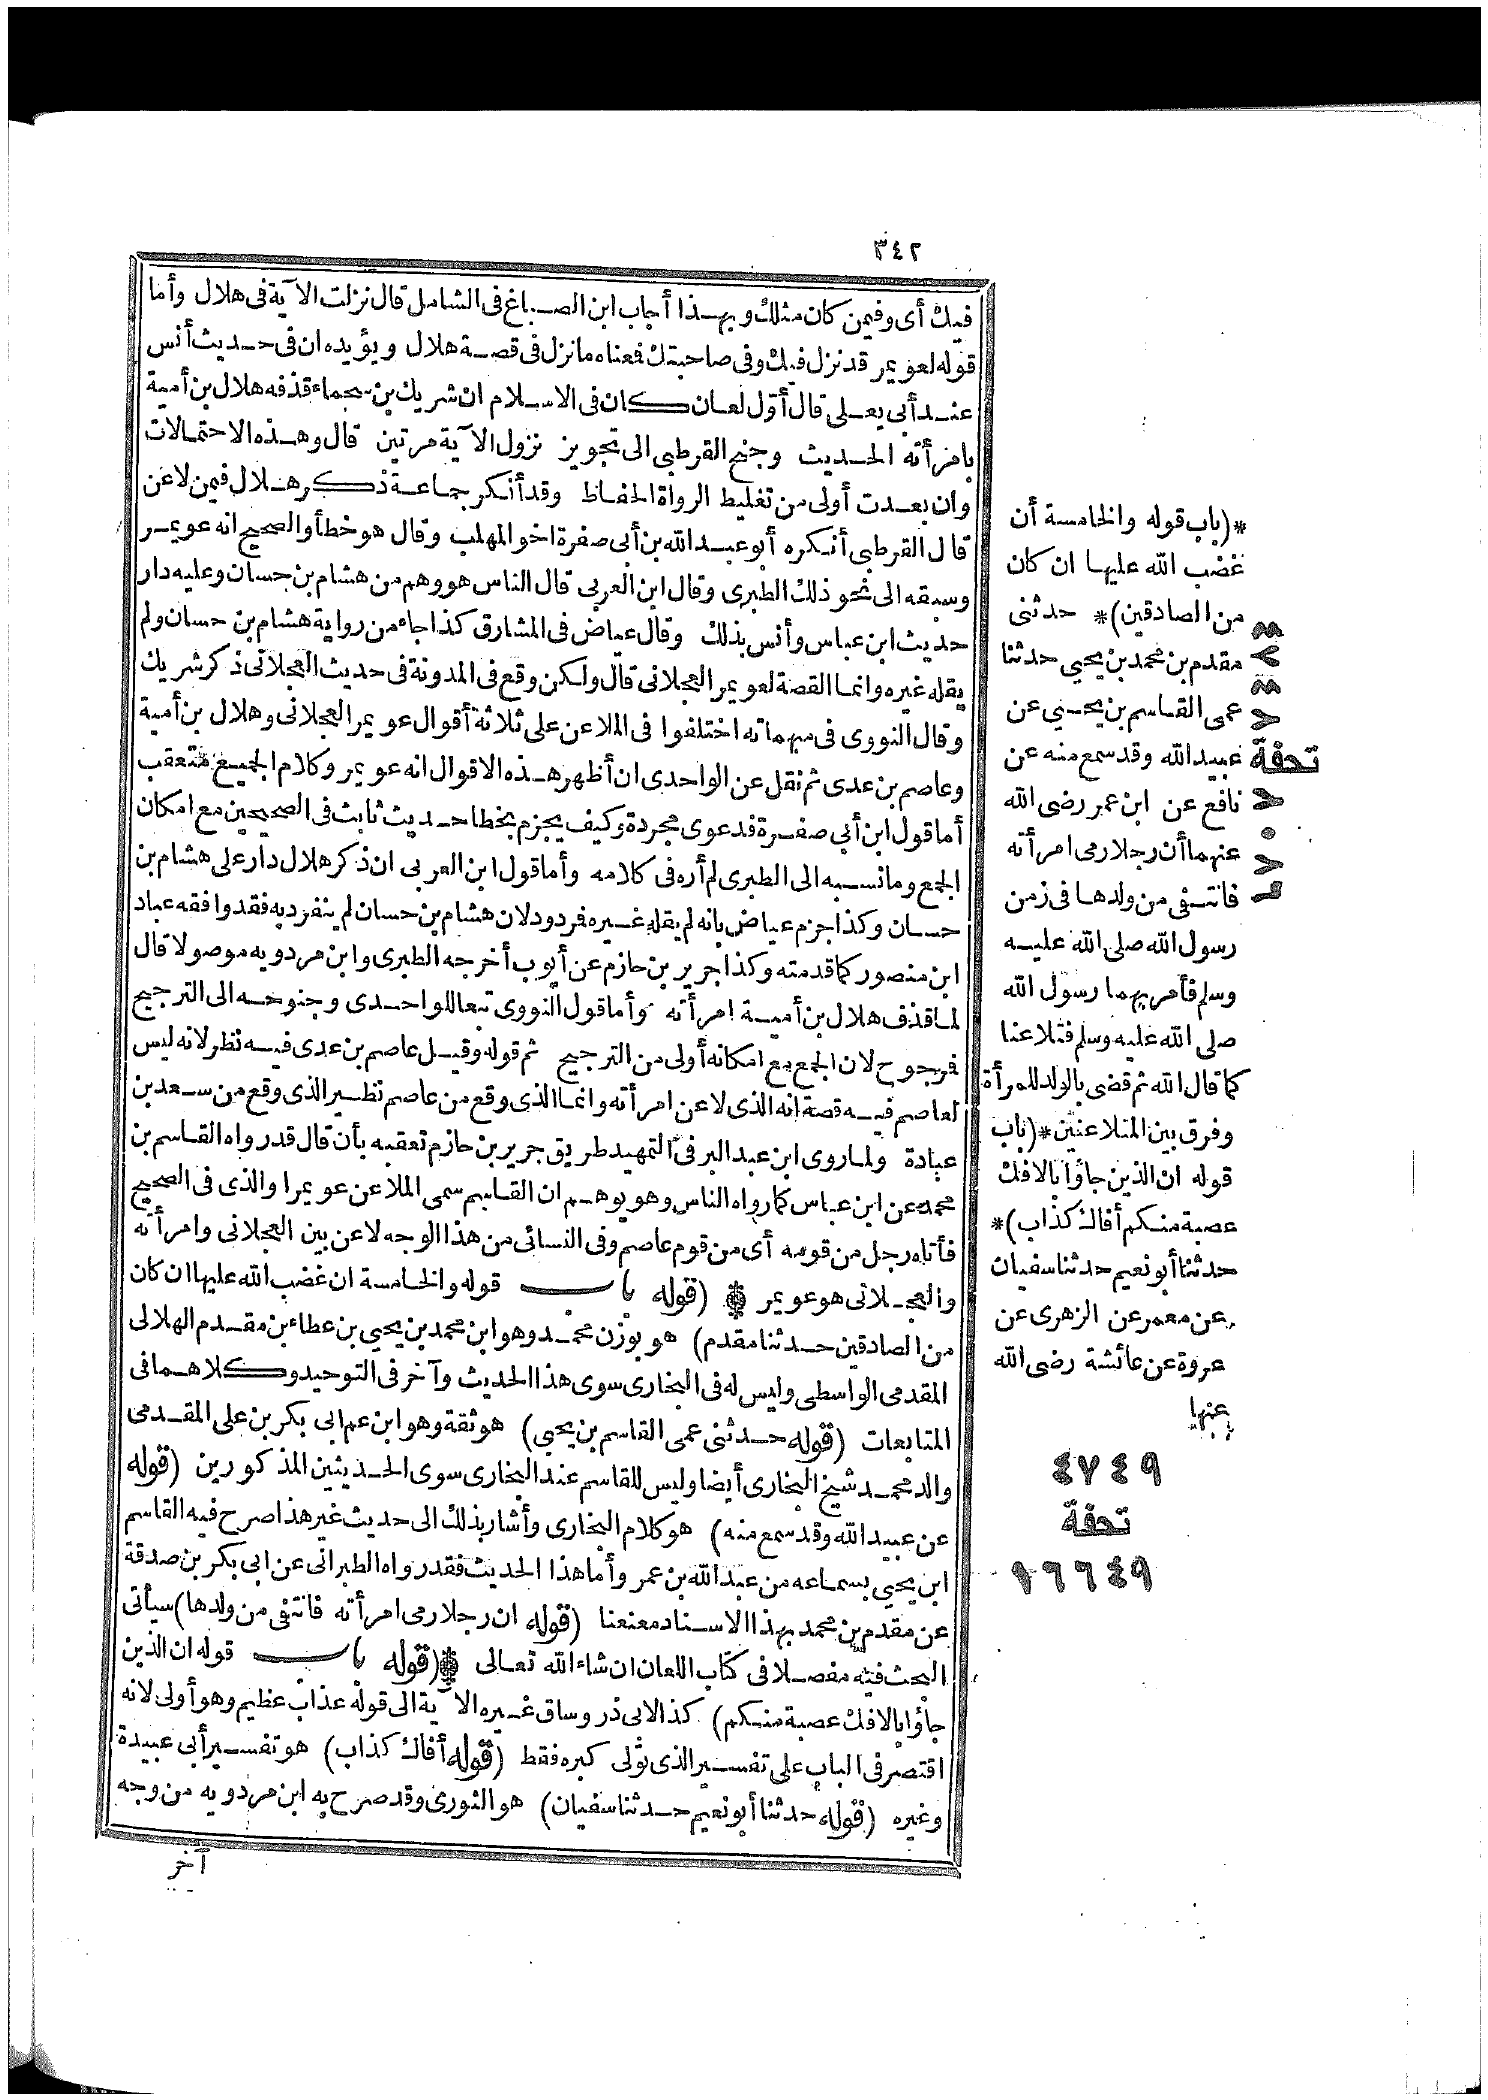 ٣٤٢
فيك أى وفيمن كان مثلك وبهذا أجاب ابن الصباغ فى الشامل قال نزلت الآية فى هلال وأما
قوله لعويمر قد نزل فيك وفى صاحبتك فعناه مانزل فى قصة هلال ويؤيده ان فى حديث أنس
عند أبى يعلى قال أوّل لعان كان فى الاسلام ان شريك بن سحماء قذفه هلال بن أمية
بامرأته الحديث وجنح القرطبى الى تجويز نزول الآية مرتين قال وهذه الاحتمالات
وان بعدت أولى من تغليط الرواة الحفاظ وقد أنكر جماعة ذكر هلال فيمن لاعن
قال القرطبى أنكره أبو عبد الله بن أبى صفرة اخو المهلب وقال هو خطأ والصحيح انه عويمر
وسبقه الى نحو ذلك الطبرى وقال ابن العربى قال الناس هو وهم من هشام بن حسان وعليه دار
حديث ابن عباس وأنس بذلك وقال عياض فى المشارق كذا جاء من رواية هشام بن حسان ولم
يقله غيره وانما القصة لعويمر العجلانى قال ولكن وقع فى المدونة فى حديث العجلانى ذكر شريك
وقال النووى فى مبهماته اختلفوا فى الملاعن على ثلاثة أقوال عويمر العجلانى وهلال بن أمية
وعاصم بن عدى ثم نقل عن الواحدى ان أظهر هذه الاقوال انه عويمر وكلام الجميع متعقب
أما قول ابن أبى صفرة فدعوى مجردة وكيف يجزم بخطا حديث ثابت فى الصحيحين مع امكان
الجمع وما نسبه الى الطبرى لم أره فى كلامه وأما قول ابن العربى ان ذكر هلال دار على هشام بن
حسان وكذا جزم عياض بانه لم يقله غيره فردود لان هشام بن حسان لم ينفرد به فقد وافقه عباد
ابن منصور كما قدمته وكذا جرير بن حازم عن أيوب أخرجه الطبرى وابن مردويه موصولا قال
لما قذف هلال بن أمية امرأته وأما قول النووى تبعا للواحدى وجنوحه الى الترجيح
فرجوح لان الجمع مع امكانه أولى من الترجيح ثم قوله وقيل عاصم بن عدى فيه نظر لانه ليس
لعاصم فيه قصة انه الذى لاعن امرأته وانما الذى وقع من عاصم نظير الذى وقع من سعد بن
عبادة ولما روى ابن عبد البر فى التمهيد طريق جرير بن حازم تعقبه بأن قال قد رواه القاسم بن
محمد عن ابن عباس كما رواه الناس وهو يوهم ان القاسم سمى الملاعن عويمرا والذى فى الصحيح
فأتاه رجل من قومه أى من قوم عاصم وفى النسائى من هذا الوجه لاعن بين العجلانى وامرأته
والعجلانى هو عويمر ❋ (قوله باب قوله والخامسة ان غضب الله عليها ان كان
من الصادقين حدثنا مقدم) هو بوزن محمد وهو ابن محمد بن يحيى بن عطاء بن مقدم الهلالى
المقدمى الواسطى وليس له فى البخارى سوى هذا الحديث وآخر فى التوحيد وكلاهما فى
المتابعات (قوله حدثنى عمى القاسم بن يحيى) هو ثقة وهو ابن عم ابى بكر بن على المقدمى
والد محمد شيخ البخارى أيضا وليس للقاسم عند البخارى سوى الحديثين المذكورين (قوله
عن عبيد الله وقد سمع منه) هو كلام البخارى وأشار بذلك الى حديث غير هذا صرح فيه القاسم
ابن يحيى بسماعه من عبد الله بن عمر وأما هذا الحديث فقد رواه الطبرانى عن ابى بكر بن صدقة
عن مقدم بن محمد بهذا الاسناد معنعنا (قوله ان رجلا رمى امرأته فانتفى من ولدها) سيأتى
البحث فيه مفصلا فى كتاب اللعان ان شاء الله تعالى ❋ (قوله باب قوله ان الذين
جاؤا بالافك عصبة منكم) كذا لابى ذر وساق غيره الآية الى قوله عذاب عظيم وهو أولى لانه
اقتصر فى الباب على تفسير الذى تولى كبره فقط (قوله أفاك كذاب) هو تفسير أبى عبيدة
وغيره (قوله حدثنا أبو نعيم حدثنا سفيان) هو الثورى وقد صرح به ابن مردويه من وجه
آخر
*(باب قوله والخامسة أن
غضب الله عليها ان كان
من الصادقين)* حدثنى
مقدم بن محمد بن يحيى حدثنا
عمى القاسم بن يحيى عن
عبيد الله وقد سمع منه عن
نافع عن ابن عمر رضى الله
عنهما أن رجلا رمى امرأته
فانتفى من ولدها فى زمن
رسول الله صلى الله عليه
وسلم فأمر بهما رسول الله
صلى الله عليه وسلم فتلاعنا
كما قال الله ثم قضى بالولد للمرأة
وفرق بين المتلاعنين *(باب
قوله ان الذين جاؤا بالافك
عصبة منكم أفاك كذاب)*
حدثنا أبو نعيم حدثنا سفيان
عن معمر عن الزهرى عن
عروة عن عائشة رضى الله
عنها
تحفة
٤٧٤٩
تحفة
١٦٦٤٩